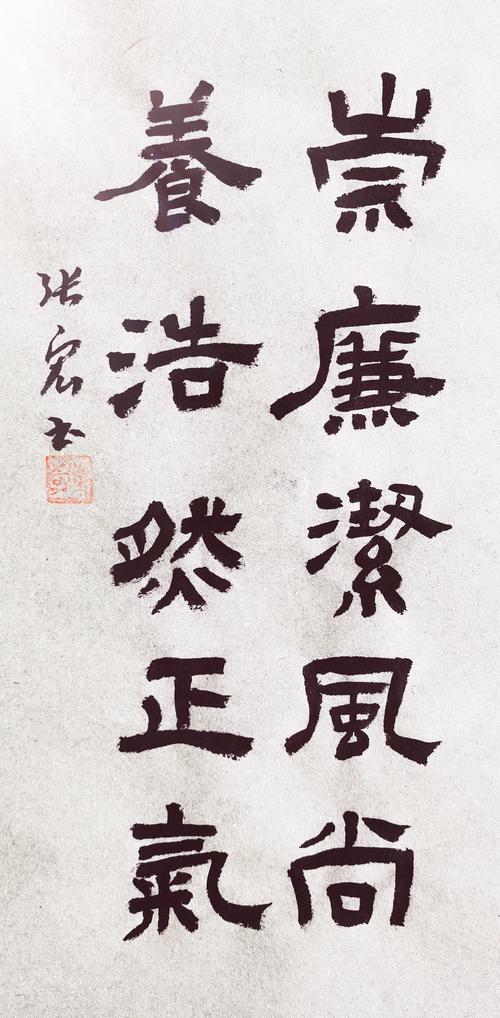 崇廉潔風尚
養浩然正氣
张宏书